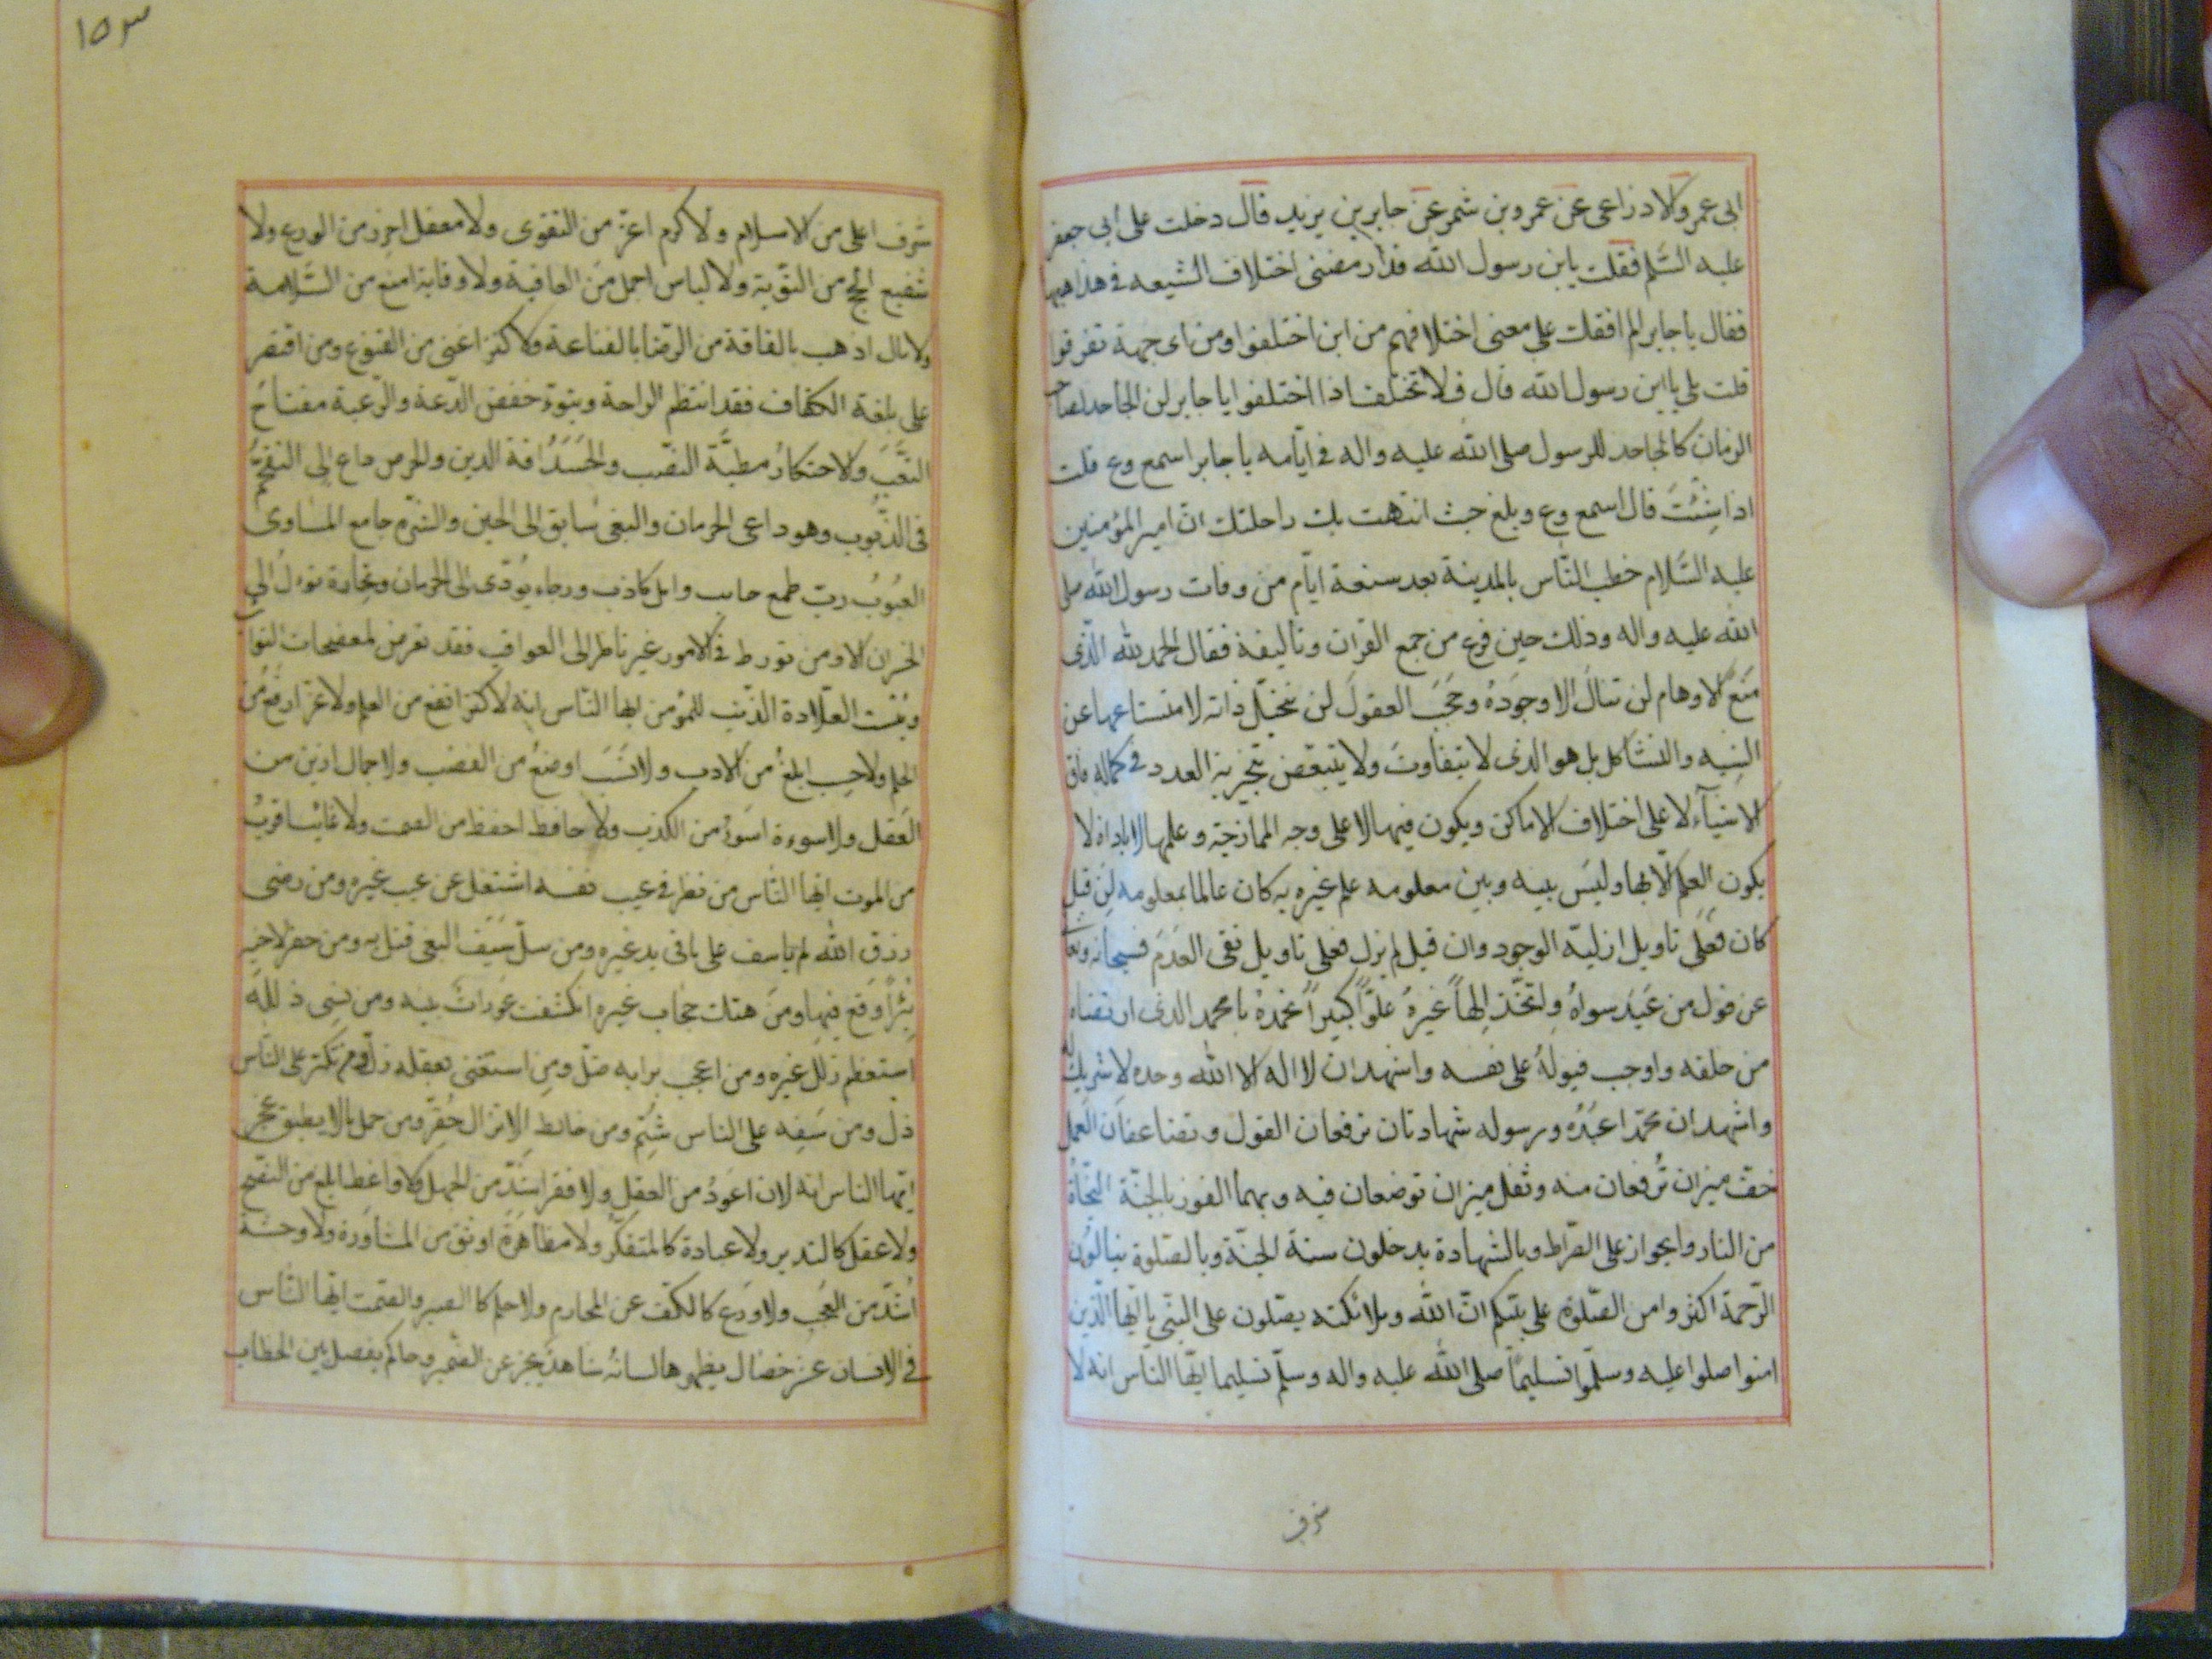 ابى عمرو الاوزاعى عن عمرو بن شمر عن جابر بن يزيد قال دخلت على ابى جعفر
عليه السّلم فقلت يابن رسول الله قد ارمضنى اختلاف الشيعه فى مذاهبها
فقال يا جابر الم اقفك على معنى اختلافهم من اين اختلفوا ومن اى جهة تفرقوا
قلت بلى يا ابن رسول الله قال فلا تختلف اذا اختلفوا يا جابر ان الجاحد لصاحب
الزمان كالجاحد للرسول صلى الله عليه واله فى ايّامه يا جابر اسمع وع قلت
اذا شِئتَ قال اسمع وع وبلغ حيث انتهت بك راحلتك انّ امير المؤمنين
عليه السّلام خطب النّاس بالمدينة بعد سبعة ايّام من وفات رسول الله صلى
الله عليه واله وذلك حين فرغ من جمع القران وتاليفة فقال الحمد لله الّذى
منعَ الاوهام ان تنال الا وجوده وحجَبَ العقول ان تختيّل ذاته لامتناعها عن
الشبه والتشاكل بل هو الذى لا يتفاوت ولا يتبعّض بتجزية العدد فى كماله فارق
الاشيآء لا على اختلاف الاماكن ويكون فيها لا على وجه الممازجة وعلمها لا باداة لا
يكون العلم الّا بها وليس بينه وبين معلومه علم غيره به كان عالما بمعلومه ان قيل
كان فعلى تاويل ازلية الوجود وان قيل لم يزل فعلى تاويل نفى العدَم فسبحانه وتعا
عن قول من عَبَد سواهُ واتخّذ الهاً غيرهُ علوّاً كبيراً نحمدهُ بالحمد الذى ارتضاه
من خلقه واوجب قبولهُ على نفسه واشهد ان لا اله الا الله وحده لا شريك له
واشهد ان محمّدا عبَدُه ورسوله شهادتان ترفعان القول وتضاعفان العمل
خفّ ميزان تُرفعان منه وثقل ميزان توضعان فيه وبهما الفوز بالجنّة النجّاة
من النار والجواز على الصّراط وبالشهادة يدخلون الجنّة وبالصّلوة ينالون
الرّحمة اكثروا من الصّلوة على نبيّكم انّ الله وملائكته يصّلون على النبّي يا ايّها الّذين
امنوا صلوا عليه وسلّموا تسليماً صلى الله عليه واله وسلّم تسليما ايّها النّاس انه لا
شرف
١٥٣
شرف اعلى من الاسلام ولا كرم اعزّ من التقوى ولا معقل احرز من الورع ولا
شفيع انجح من التّوبة ولا لباس اجمل من العافية ولا وقاية امنع من السّلامة
ولا مال اذهب بالفاقة من الرّضا بالقناعة ولا كنز اغنى من القنوع ومن اقتصر
على بلغة الكفاف فقد انتظم الراحة وتبّوء خفض الدّعة والرّغبة مفتاح
التّعَب والاحتكارُ مطيَّة النصّب والحَسَدُ افة الدين والحرص داع الى التقحّم
فى الذّنوب وهو داعى الحرمان والبغى سايق الى الحين والشرّه جامع المساوى
العيُوب ربّ طمع خايب وامل كاذب ورجاء يُودّى الى الحرمان وتجارة تؤلُ الى
الخسران الا ومن تورط فى الامور غير ناظر الى العواقب فقد تعرّض لمفضحات النوا
وبئست القلادة الذّنب للمؤمن ايها النّاس انه لا كنز انفع من العلم ولا عزّ ارفع من
الحلم ولا حسب ابلغ من الادب ولا نسَبَ اوضعُ من الغضب ولا جمال ازين من
العقل ولا سوءة اسَوءُ من الكذب ولا حافظ احفظ من الصمت ولا غائبا قربُ
من الموت ايّها النّاس من نظر فى عيب نفسه اشتغل عن عيب غيره ومن رضى
رزق الله لم ياسف على ما فى يد غيره ومن سلّ سَيَف البغى قتل به ومن حفر لاخيه
بُئراً وَقَع فيها ومن هتك حجاب غيره انكشفت عَورات بيته ومن نسى ذلله
استعظم زلل غيره ومن اعجب برايه ضلّ ومن استغنى بعقله زلّ ومن تكبّر على النّاس
ذل ومن سَفِه على الناس شُتِم ومن خالط الانذال حُقِر ومن حمل مالا يطيق عجز
ايّها الناس انه لا مال اعَودُ من العقل ولا فقر اشدّ من الجهل ولا واعظ ابلغ من النصّح
ولا عقل كالتدبير ولا عبادة كالمتفكّر ولا مظاهَرة اوثق من المشاوَرة ولا وحشة
اشَدّ من العُجب ولا وَرَع كالكفّ عن المحارم ولا حلم كالصبر والصّمت ايّها النّاس
فى الانسان عشر خصال يظهرها لسانهُ شاهد يخبر عن الضّمير وحاكم يفصل بين الخطاب